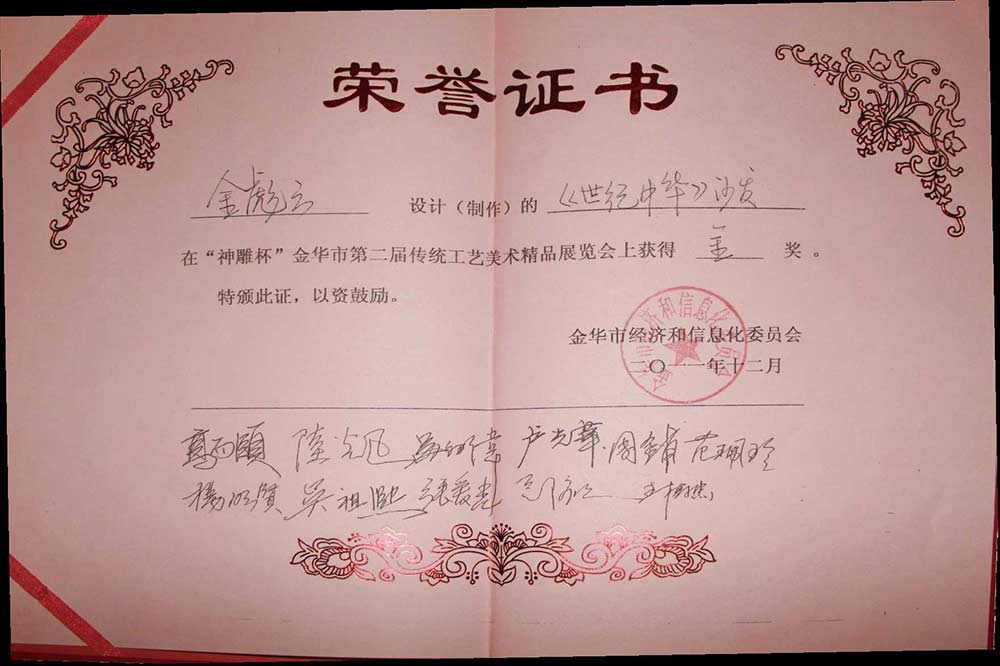 荣誉证书
金彪云 设计（制作）的 《世纪中华》沙发
在“神雕杯”金华市第二届传统工艺美术精品展览会上获得 金 奖。
特颁此证，以资鼓励。
金华市经济和信息化委员会
二〇一一年十二月
金华市经济和信息化委员会
陆光正
杨明贤 吴祖熙